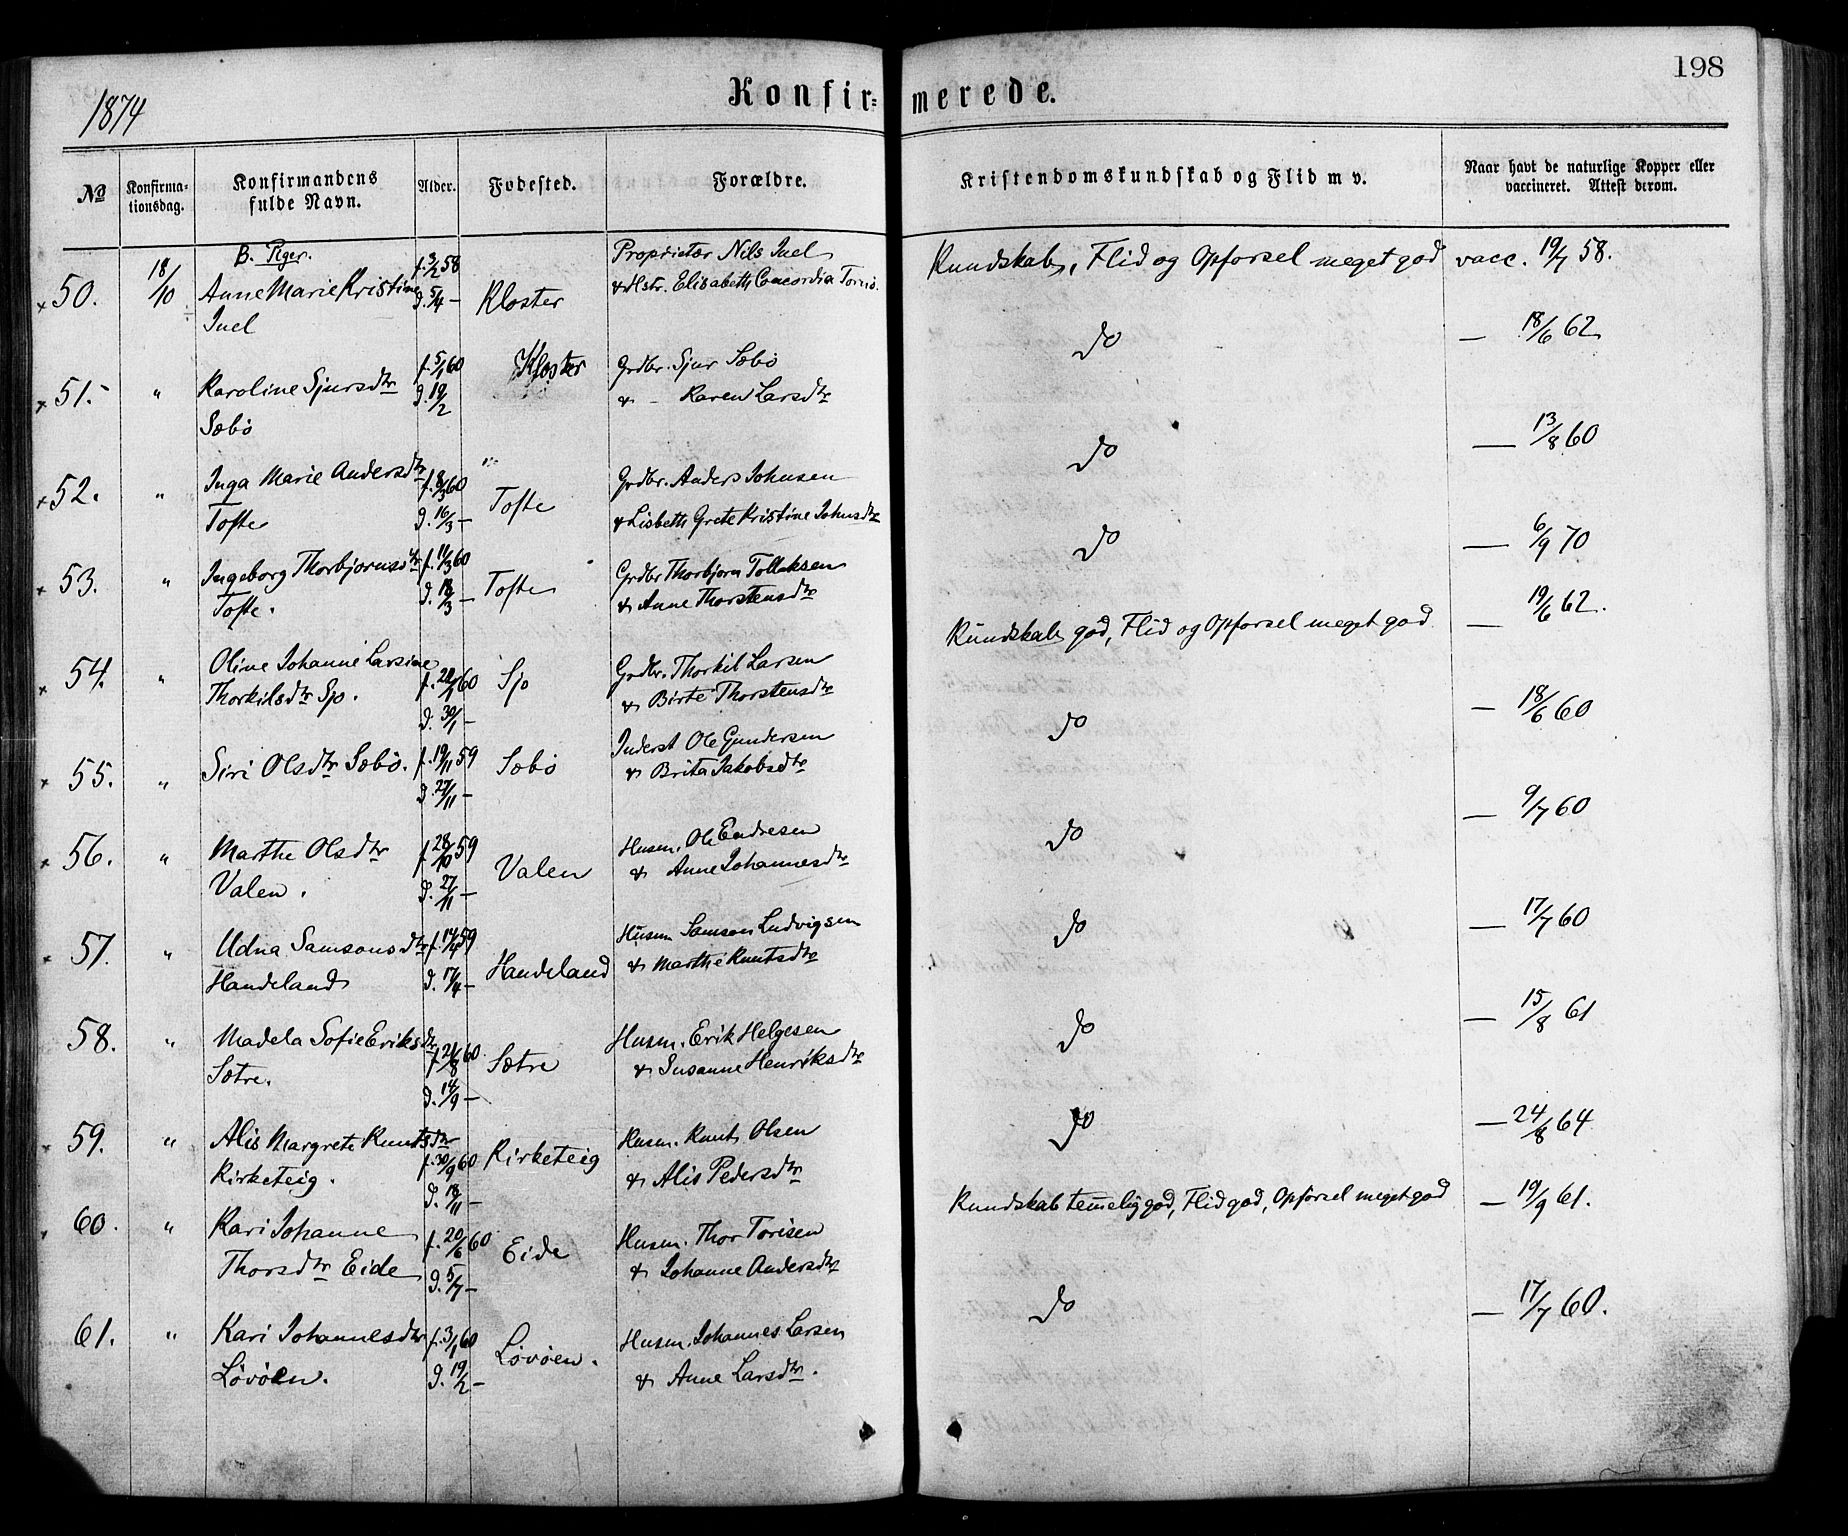 198
1874
Konfir= merede.
No
Konfirma-
tionsdag.
Konfirmandens
fulde Navn.
Alder.
Fødested.
Forældre.
Kristendomskundskab og Flid m v.
Naar havt de naturlige Kopper eller
vaccineret. Attest derom.
B. Piger.
× 50. 18/10 Anne Marie Kristine f. 3/2 58 Kloster Proprietær Nils Juel Kundskab, Flid og Opførsel meget god vacc. 19/7 58.
Juel d. 5/4 — & Hstr. Elisabeth Concordia
× 51. " Karoline Sjursdtr f. 5/1 60 Kloster Grdbr. Sjur Sæbø do — 18/6 62
Sæbø d. 19/2 & — Karen Larsdtr
× 52. " Inga Marie Andersdtr f. 8/3 60 Tofte Grdbr. Anders Johnsen do — 13/8 60
Tofte d. 16/3 — & Lisbeth Grete Kristine Johnsdtr
× 53. " Ingeborg Thorbjørnsdtr f. 11/3 60 Tofte Grdbr Thorbjørn Tollaksen do — 6/9 70
Tofte. d. 18/3 — & Anne Thorstensdtr
× 54. " Oline Johanne Larsine f. 22/1 60 Sjo Grdbr. Thorkil Larsen Kundskab god, Flid og Opførsel meget god — 19/6 62.
Thorkilsdtr Sjo. d. 30/1 — & Birte Thorstensdtr
× 55. " Siri Olsdtr Sæbø. f. 19/11 59 Sæbø Inderst Ole Gundersen do — 18/6 60
d. 27/11 — & Brita Jakobsdtr
× 56. " Marthe Olsdtr f. 28/10 59 Valen Husm. Ole Endresen do — 9/7 60
Valen. d. 27/11 — & Anne Johannesdtr
× 57. " Udna Samsonsdtr f. 14/4 59 Handeland Husm Samson Ludvigsen do — 17/7 60
Handeland d. 17/4 — & Marthe Knutsdtr
58. " Madela Sofie Eriksdtr f. 21/8 60 Sætre Husm. Erik Helgesen do — 15/8 61
Sætre. d. 14/9 — & Susanne Henriksdtr
× 59. " Alis Margrete Knutsdtr f. 30/9 60 Kirketeig Husm. Knut Olsen do — 24/8 64
Kirketeig. d. 18/11 — & Alis Pedersdtr
× 60. " Kari Johanne f. 20/6 60 Eide Husm. Thor Torisen Kundskab temmelig god, Flid god, Opførsel meget god — 19/9 61.
Thorsdtr Eide d. 5/7 — & Johanne Andersdtr
61. " Kari Johannesdtr f. 3/1 60 Løvøen. Husm. Johannes Larsen do — 17/7 60.
Løvøen. d. 19/2 — & Anne Larsdtr.